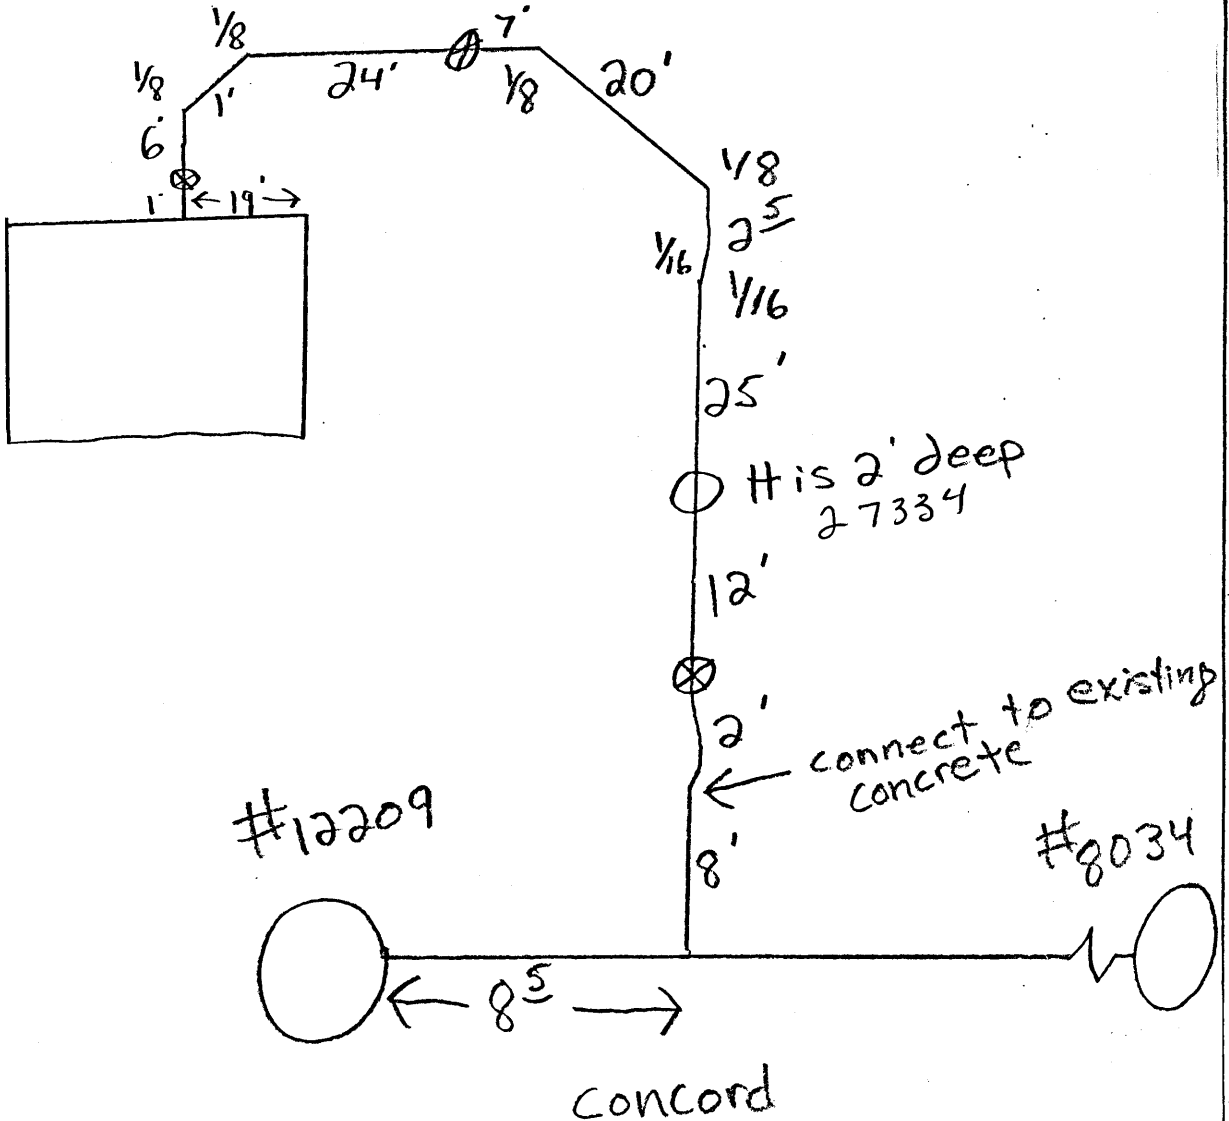 1/8
7'
1/8
1'
24'
1/8
20'
6'
1'
19'
1/8
2 5
1/16
1/16
25'
H is 2' deep
27334
12'
2'
connect to existing
concrete
#12209
8'
#8034
8 5
concord